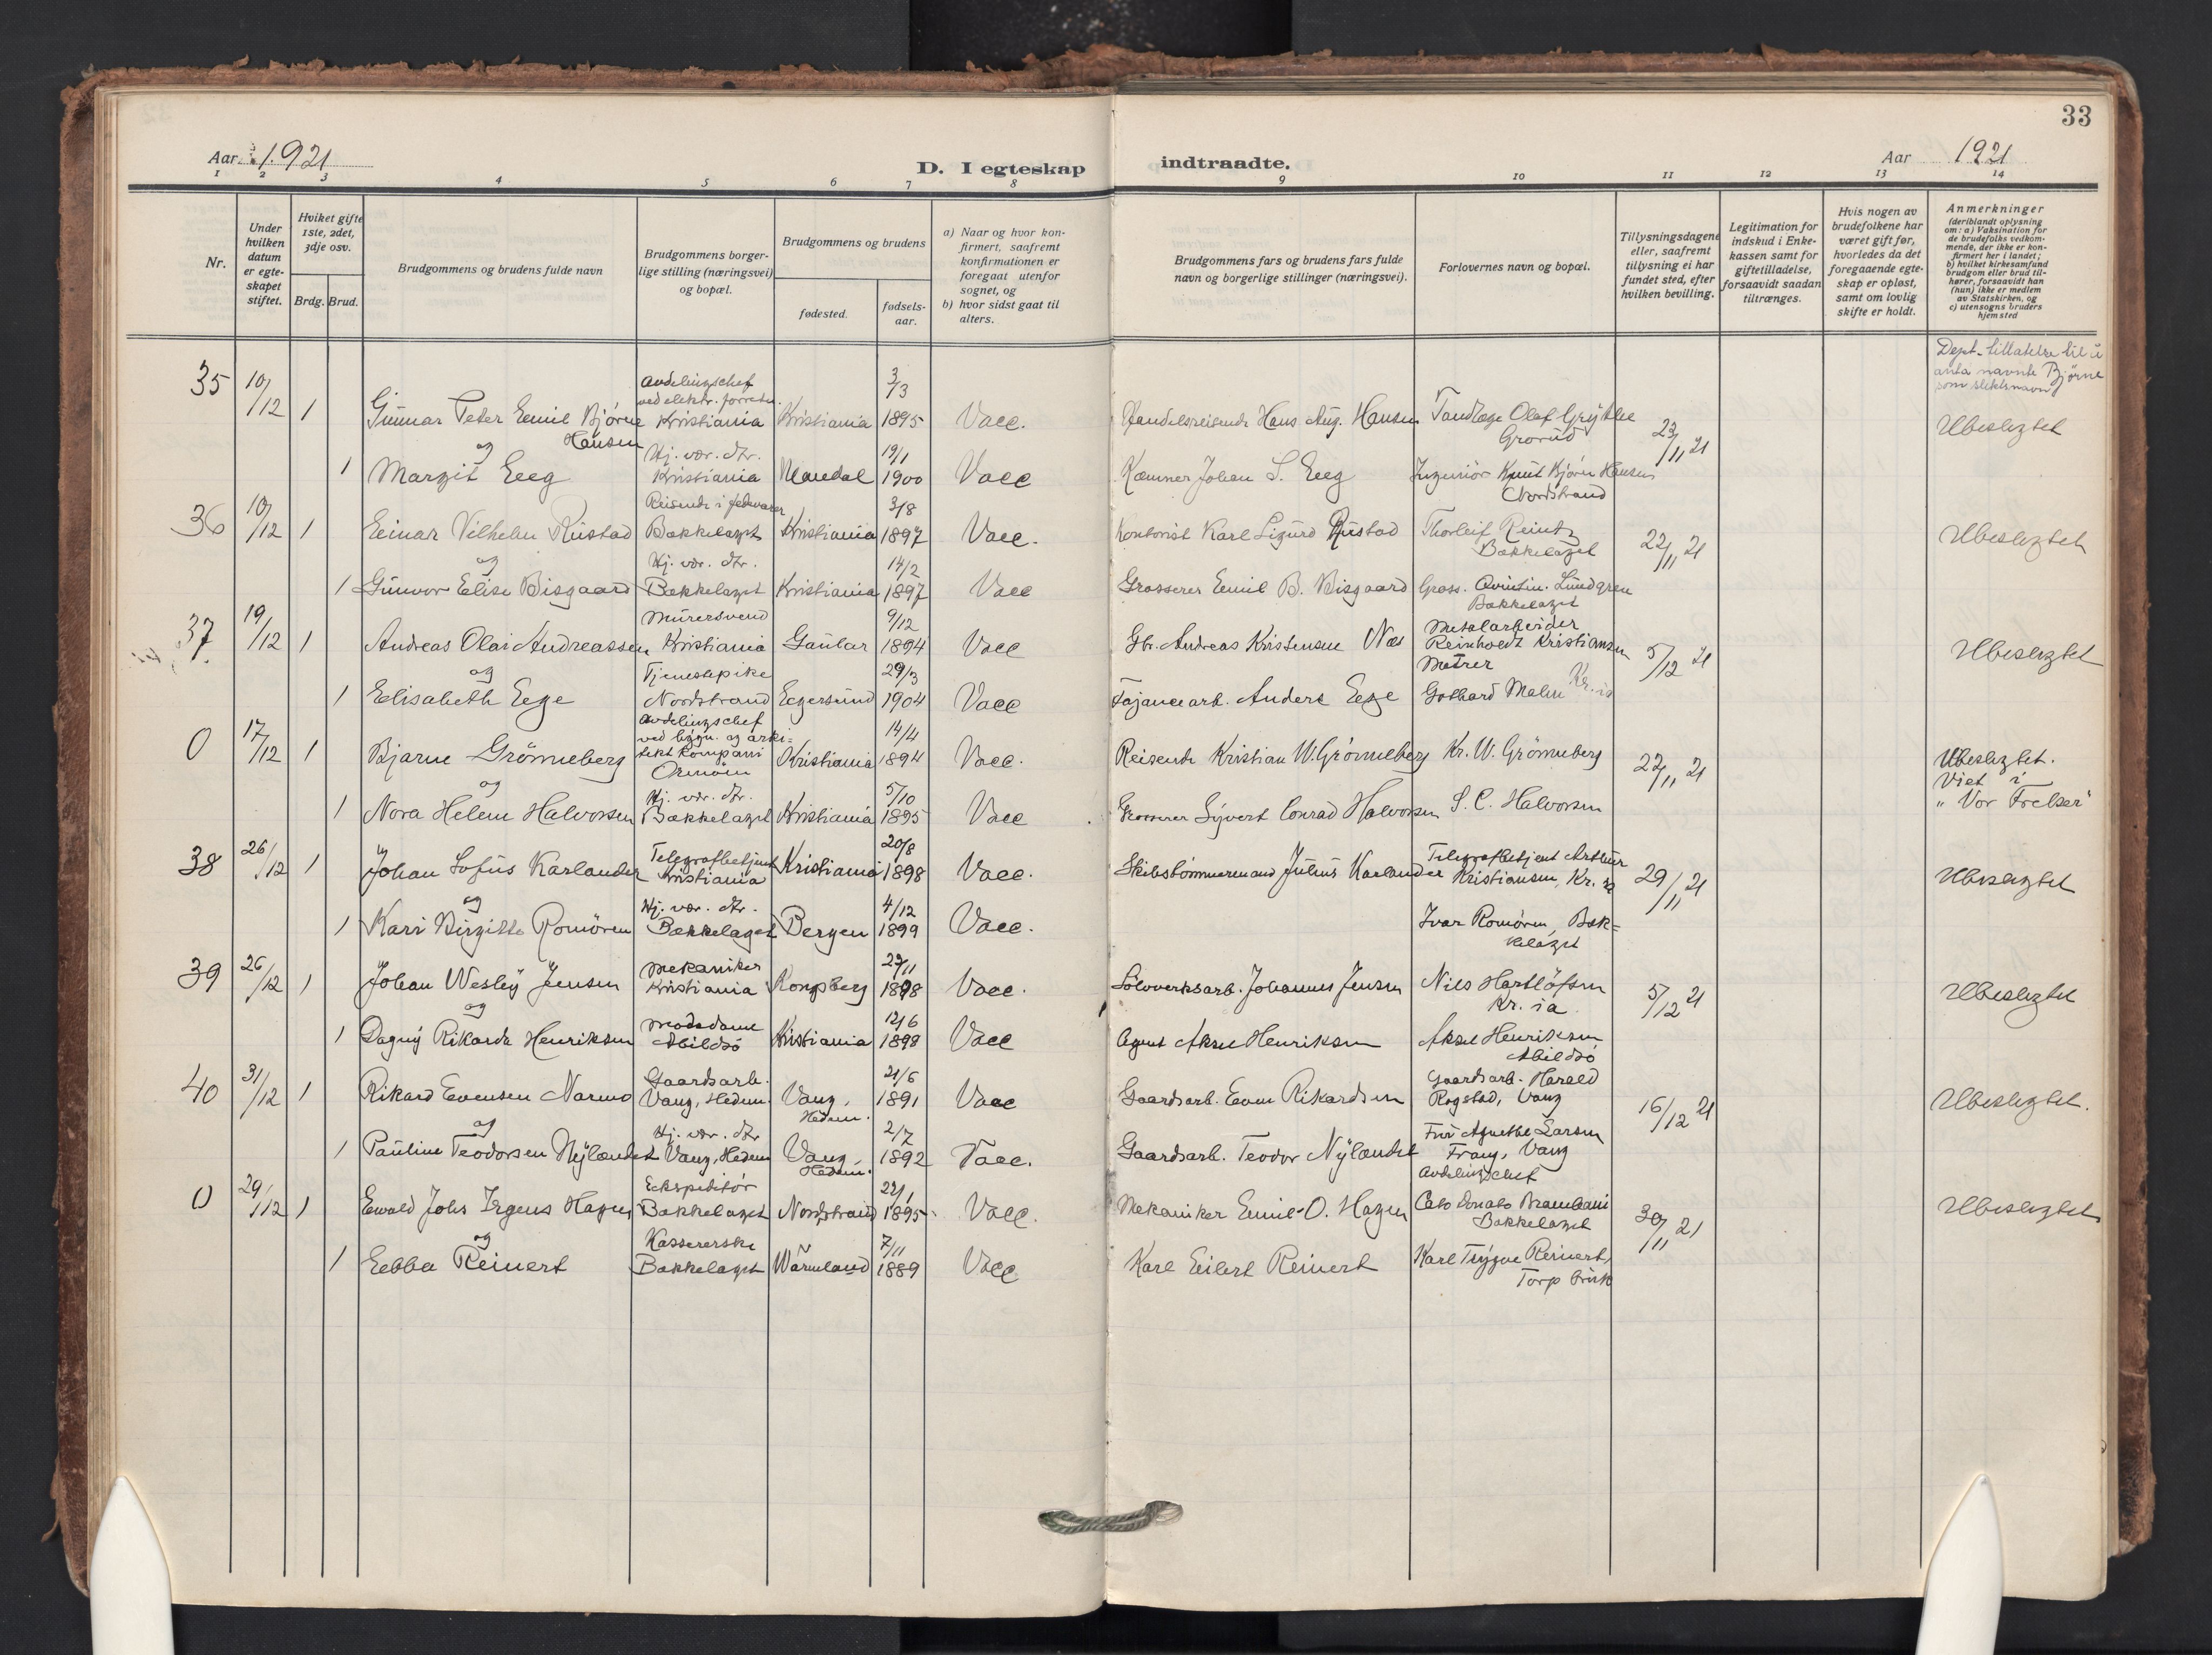 33
Aar 1921
D. I egteskap indtraadte.
Aar 1921
1 2 3 4 5 6 7 8 9 10 11 12 13 14
Nr.
Under hvilken datum er egte-skapet stiftet.
Hviket gifte 1ste, 2det, 3dje osv.
Brdg. Brud.
Brudgommens og brudens fulde navn
Brudgommens borger-lige stilling (næringsvei) og bopæl.
Brudgommens og brudens
fødested.
fødsels-aar.
a) Naar og hvor kon-firmert, saafremt konfirmationen er foregaat utenfor sognet, og
b) hvor sidst gaat til alters.
Brudgommens fars og brudens fars fulde navn og borgerlige stillinger (næringsvei).
Forlovernes navn og bopæl.
Tillysningsdagene eller, saafremt tillysning ei har fundet sted, efter hvilken bevilling.
Legitimation for indskud i Enke-kassen samt for giftetilladelse, forsaavidt saadan tiltrænges.
Hvis nogen av brudefolkene har været gift før, hvorledes da det foregaaende egte-skap er opløst, samt om lovlig skifte er holdt.
Anmerkninger (deriblandt oplysning om: a) Vaksination for de brudefolks vedkom-mende, der ikke er kon-firmert her i landet; b) hvilket kirkesamfund brudgom eller brud til-hører, forsaavidt han (hun) ikke er medlem av Statskirken, og c) utensogns bruders hjemsted
35 10/12 1 Gunnar Peder Emil Bjørne Hansen Avdelingschef ved elektr. forretn. Kristiania Kristiania 3/3 1895 Vacc. Handelsreisende Hans Aug. Hansen Tandlæge Olaf Grytbe Grorud 23/11 21 Dept. tillatelse til å anta navnet Bjørne som slektsnavn Ubeslegtet
og
1 Margit Eeg Hj. vær. dtr. Kristiania Mandal 19/1 1900 Vacc Kæmner Johan S. Eeg Ingeniør Knut Bjørn Hansen Nordstrand
36 10/12 1 Einar Vilhelm Rustad Reisende i fedevarer Bækkelaget Kristiania 3/8 1897 Vacc. Kontorist Karl Sigurd Rustad Thorleif Reintz Bækkelaget 22/11 21 Ubeslegtet
og
1 Gunvor Elise Bisgaard Hj. vær. dtr. Bækkelaget Kristiania 14/2 1897 Vacc Grosserer Emil B. Bisgaard Gross. Qvintin Lundgren Bækkelaget
37 19/12 1 Andreas Olai Andreassen Murersvend Kristiania Gaular 9/12 1894 Vacc Gbr. Andreas Kristensen Nes Metalarbeider Reinholdt Kristiansen 5/12 21 Ubeslegtet
og
1 Elisabeth Eege Tjenestepike Nordstrand Egersund 29/3 1904 Vacc Fajancearb. Anders Eege Matrer Gothard Malm Kr.ia
0 17/12 1 Bjarne Grönneberg Avdelingschef ved bygn. og arki=tekt kompani Ormöen Kristiania 14/4 1894 Vacc. Reisende Kristian W. Grönneberg Kr. W. Grönneberg 22/11 21 Ubeslegtet. Viet i "Vor Frelser"
og
1 Nora Helene Halvorsen Hj. vær. dtr. Bækkelaget Kristiania 5/10 1895 Vacc Grosserer Syvert Conrad Halvorsen S. C. Halvorsen
38 26/12 1 Johan Sofus Karlander Telegrafbetjent Kristiania Kristiania 20/8 1898 Vacc. Skibstömmermand Julius Karlander Telegrafbetjent Arthur Kristiansen, Kr.ia 29/11 21 Ubeslegtet
og
1 Kari Birgitte Romören Hj. vær. dtr. Bækkelaget Bergen 4/12 1899 Vacc. Ivar Romören, Bæk=kelaget
39 26/12 1 Johan Wesley Jensen Mekaniker Kristiania Kongsberg 27/11 1898 Vacc. Sölvverksarb. Johannes Jensen Nils Hartlöfsen Kr.ia 5/12 21 Ubeslegtet
og
1 Dagny Rikarda Henriksen Modedame Abildsö Kristiania 12/6 1898 Vacc Agent Aksel Henriksen Aksel Henriksen Abildsö
40 31/12 1 Rikard Evensen Narmo Gaardsarb. Vang, Hedm. Vang, Hedm. 21/6 1891 Vacc Gaardsarb. Even Rikardsen Gaardsarb. Harald Rogstad, Vang 16/12 21 Ubeslegtet.
og
1 Pauline Teodorsen Nylændet Hj. vær. dtr Vang, Hedm Vang, Hedm. 2/7 1892 Vacc. Gaardsarb. Teodor Nylændet Fru Agnethe Larsen Frang, Vang
0 29/12 1 Ewald Johs Irgens Hagen Ekspeditör Bækkelaget Nordstrand 22/1 1895 Vacc. Mekaniker Emil O. Hagen Avdelingschef Cato Donato Brambani Bækkelaget 30/11 21 Ubeslegtet
og
1 Ebba Reinert Kassererske Bækkelaget Wärmland 7/11 1889 Vacc. Karl Eilert Reinert Karl Trygve Reinert, Torp bruk